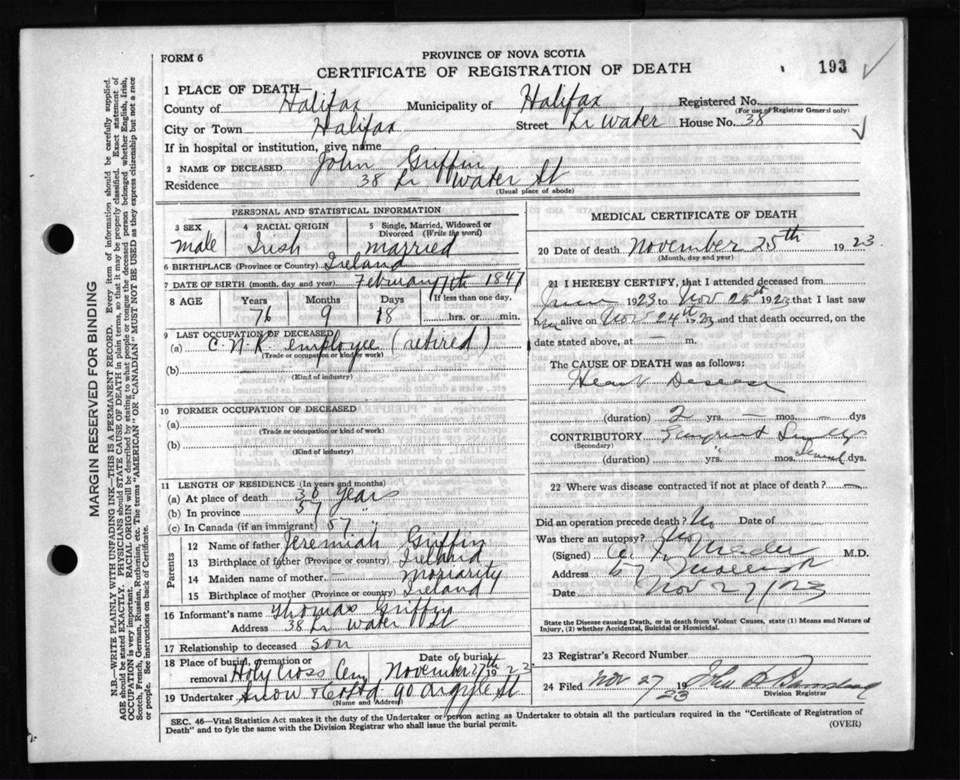 FORM 6
PROVINCE OF NOVA SCOTIA
CERTIFICATE OF REGISTRATION OF DEATH
193
1 PLACE OF DEATH—
County of Halifax Municipality of Halifax Registered No.
(For use of Registrar General only)
City or Town Halifax Street Lr Water House No. 38
If in hospital or institution, give name
2 NAME OF DECEASED John Griffin
Residence 38 Lr Water St
(Usual place of abode)
PERSONAL AND STATISTICAL INFORMATION
3 SEX 4 RACIAL ORIGIN 5 Single, Married, Widowed or Divorced (Write the word)
male Irish married
6 BIRTHPLACE (Province or Country) Ireland
7 DATE OF BIRTH (month, day and year) February 7th 1847
8 AGE Years Months Days If less than one day,
76 9 18 hrs. or min.
9 LAST OCCUPATION OF DECEASED
(a) C.N.R. employee (retired)
(Trade or occupation or kind of work)
(b)
(Kind of industry)
10 FORMER OCCUPATION OF DECEASED
(a)
(Trade or occupation or kind of work)
(b)
(Kind of industry)
11 LENGTH OF RESIDENCE (In years and months)
(a) At place of death 36 years
(b) In province 57 "
(c) In Canada (if an immigrant) 57 "
Parents
12 Name of father Jeremiah Griffin
13 Birthplace of father (Province or Country) Ireland
14 Maiden name of mother Moriarity
15 Birthplace of mother (Province or Country) Ireland
16 Informant's name Thomas Griffin
Address 38 Lr Water St
17 Relationship to deceased son
18 Place of burial, cremation or removal Holy Cross Cem Date of burial November 27th 19
19 Undertaker Snow & Co Ltd 90 Argyle St
(Name and Address)
MEDICAL CERTIFICATE OF DEATH
20 Date of death November 25th 1923
(Month, day and year)
21 I HEREBY CERTIFY, that I attended deceased from
1923 to Nov 25th 1923 that I last saw
him alive on Nov 24th 1923, and that death occurred, on the
date stated above, at — m.
The CAUSE OF DEATH was as follows:
Heart Disease
(duration) 2 yrs. — mos. — dys
CONTRIBUTORY
(Secondary)
(duration) yrs. mos. dys.
22 Where was disease contracted if not at place of death? —
Did an operation precede death? No Date of
Was there an autopsy? No
(Signed) M.D.
Address 67 Morris St
Date Nov 27/23
State the Disease causing Death, or in death from Violent Causes, state (1) Means and Nature of
Injury, (2) whether Accidental, Suicidal or Homicidal.
23 Registrar's Record Number
24 Filed Nov 27 1923
Division Registrar
SEC. 46—Vital Statistics Act makes it the duty of the Undertaker or person acting as Undertaker to obtain all the particulars required in the "Certificate of Registration of
Death" and to fyle the same with the Division Registrar who shall issue the burial permit.
(OVER)
MARGIN RESERVED FOR BINDING
N.B.—WRITE PLAINLY WITH UNFADING INK—THIS IS A PERMANENT RECORD. Every item of information should be carefully supplied.
AGE should be stated EXACTLY. PHYSICIANS should STATE CAUSE OF DEATH in plain terms, so that it may be properly classified. Exact statement of
OCCUPATION is very important. RACIAL ORIGIN will be described by stating to what people or tongue the deceased person belonged, whether English, Irish,
Scotch, French, German, Russian, Ruthenian, etc. The terms "AMERICAN" OR "CANADIAN" MUST NOT BE USED as they express citizenship but not a race
or people. See instructions on back of Certificate.